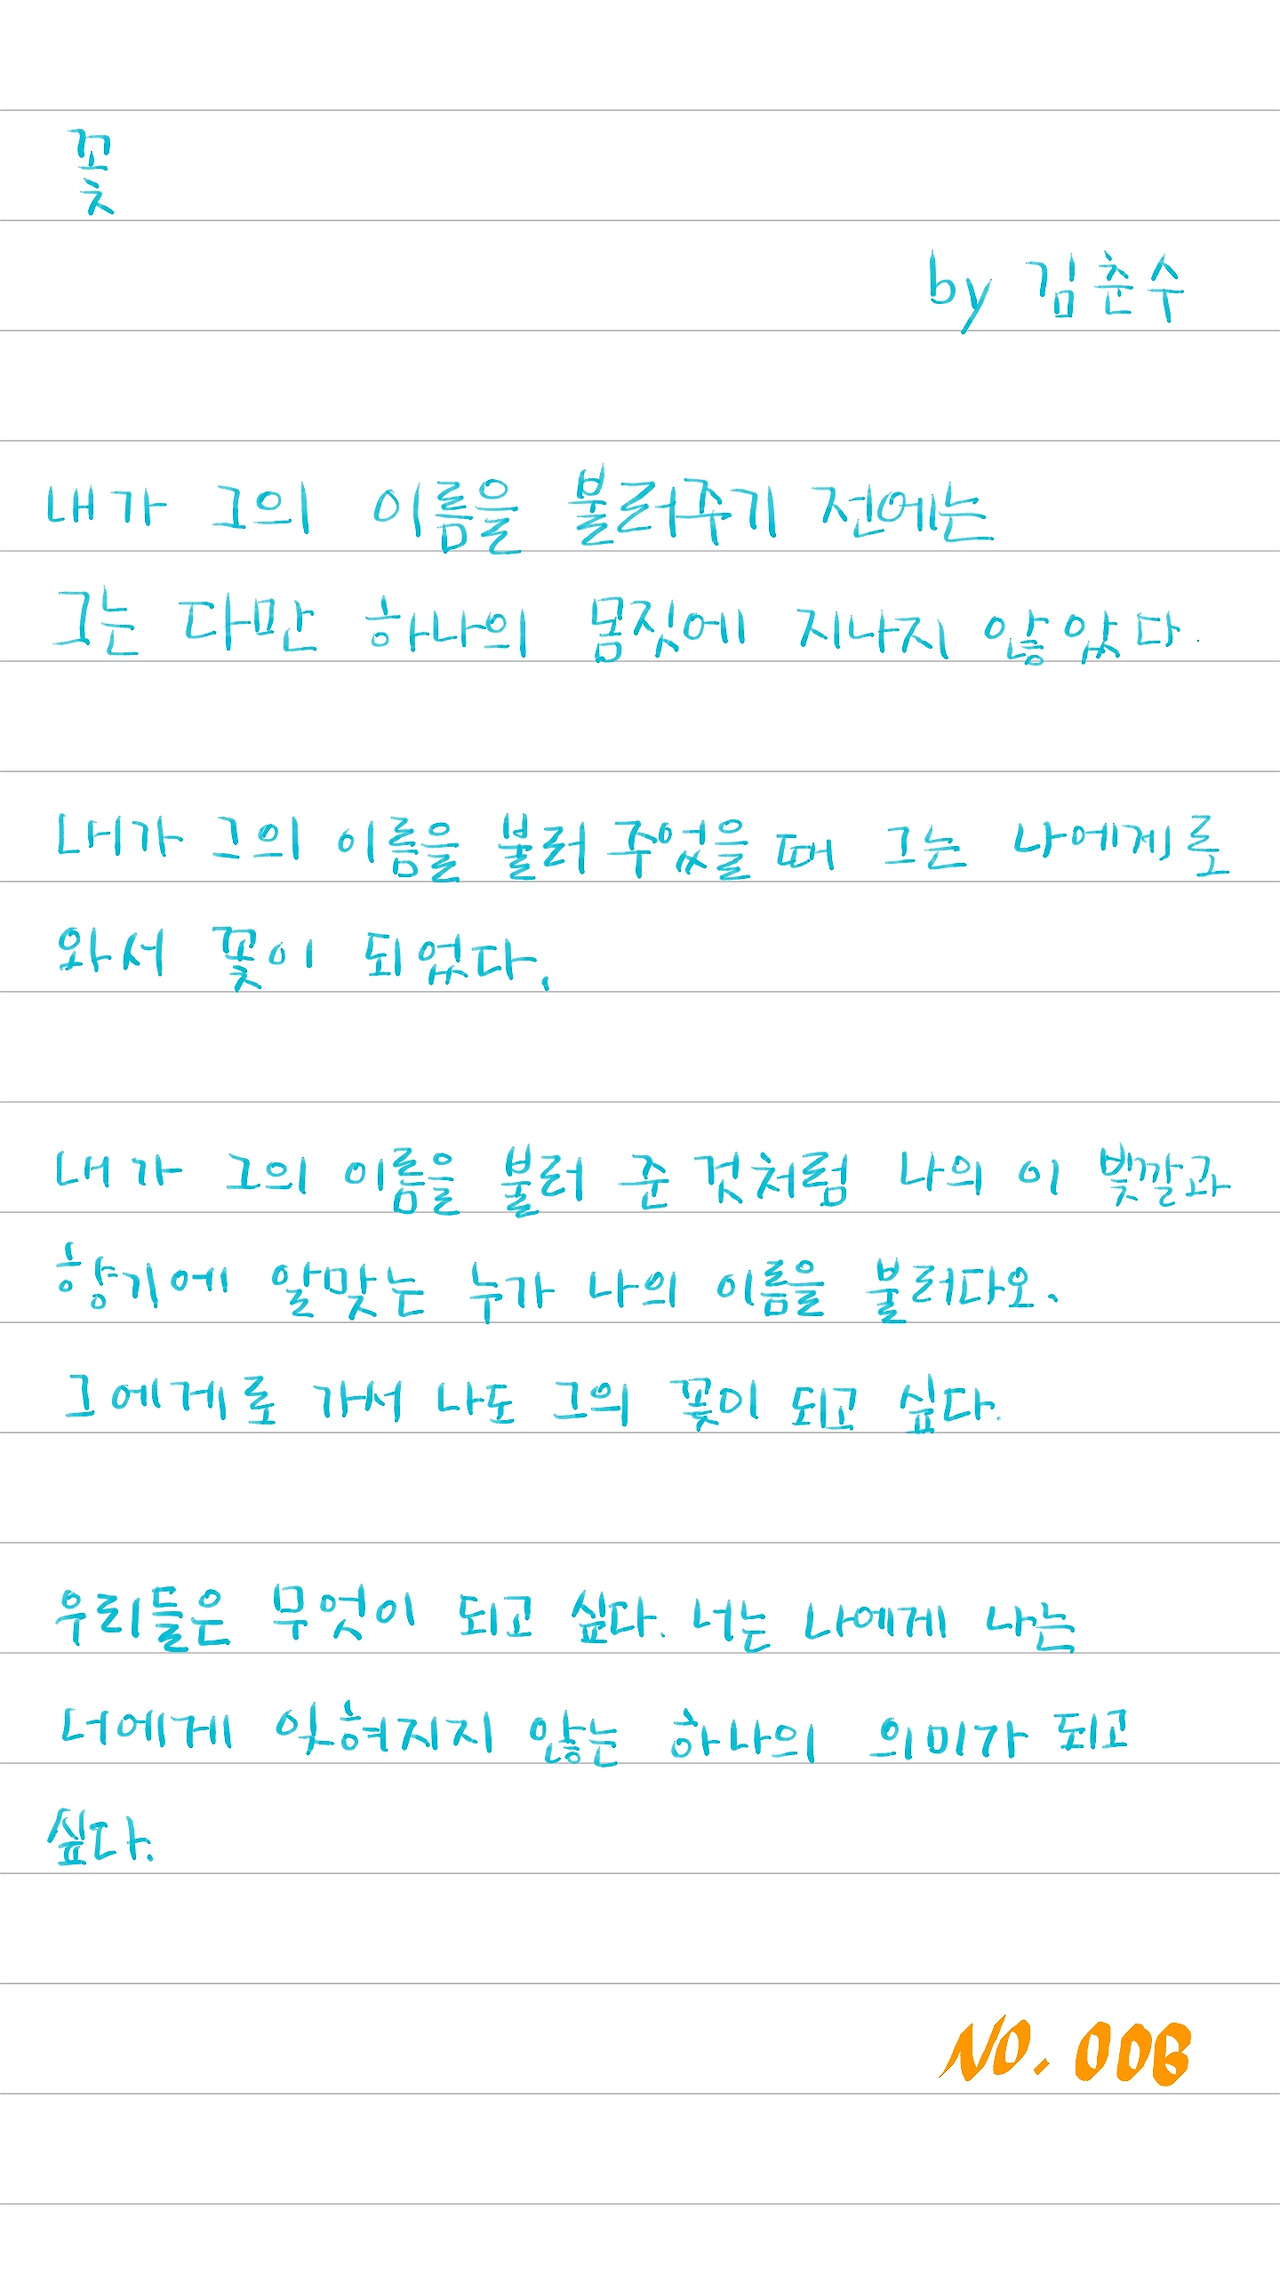 꽃
by 김춘수
내가 그의 이름을 불러주기 전에는
그는 다만 하나의 몸짓에 지나지 않았다.
내가 그의 이름을 불러 주었을 때 그는 나에게로
와서 꽃이 되었다.
내가 그의 이름을 불러 준 것처럼 나의 이 빛깔과
향기에 알맞는 누가 나의 이름을 불러다오.
그에게로 가서 나도 그의 꽃이 되고 싶다.
우리들은 무엇이 되고 싶다. 너는 나에게 나는
너에게 잊혀지지 않는 하나의 의미가 되고
싶다.
NO. 006